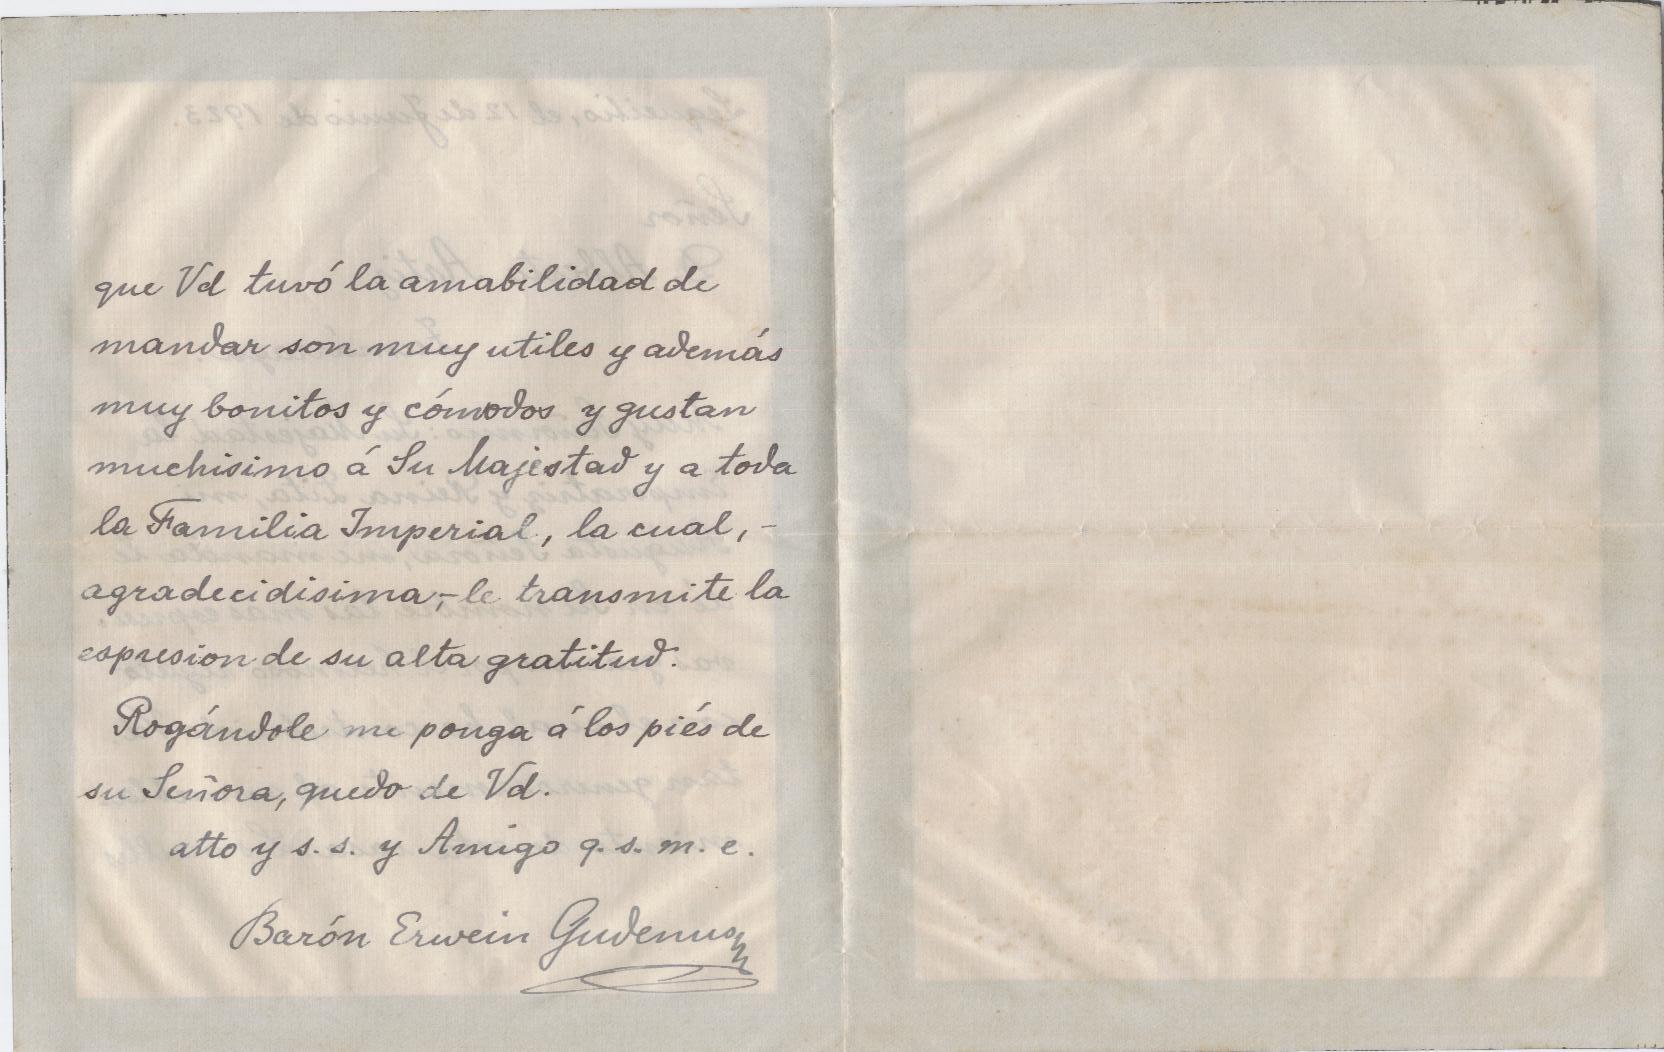 que Vd tuvó la amabilidad de
mandar son muy utiles y además
muy bonitos y cómodos y gustan
muchisimo á Su Majestad y a toda
la Familia Imperial, la cual, -
agradecidisima, - le transmite la
espresion de su alta gratitud.
Rogándole me ponga á los piés de
su Señora, quedo de Vd.
atto y s. s. y Amigo q. s. m. e.
Barón Erwein Gudenus